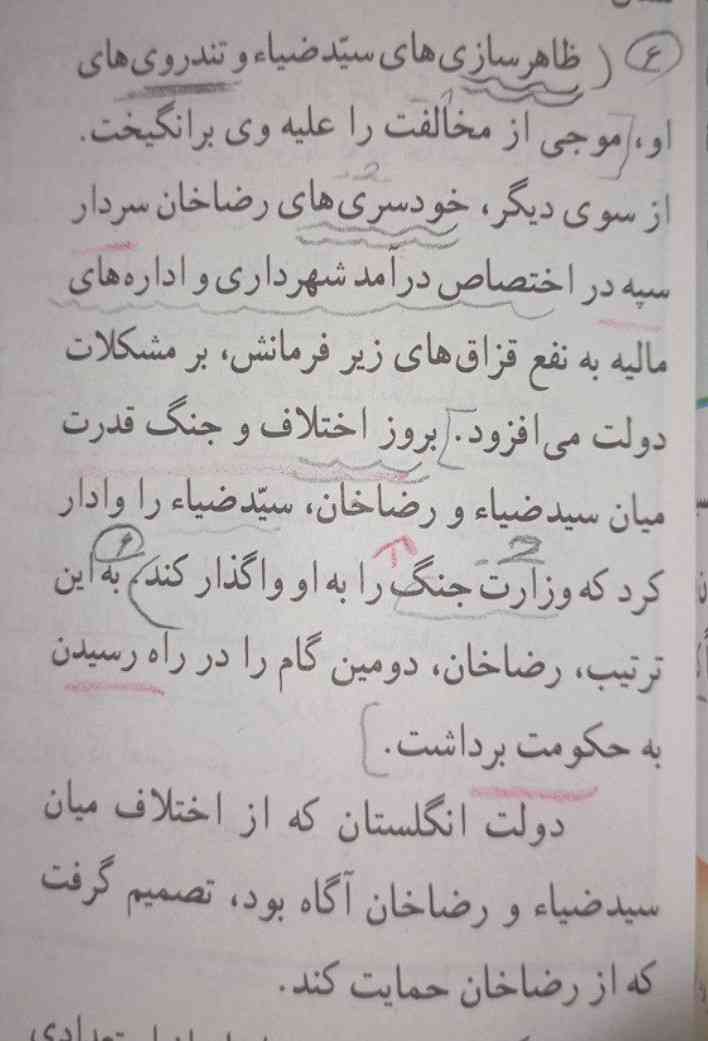 ۶ ظاهرسازی‌های سیّدضیاء و تندروی‌های
او، موجی از مخالفت را علیه وی برانگیخت.
از سوی دیگر، خودسری‌های رضاخان سردار
سپه در اختصاص درآمد شهرداری و اداره‌های
مالیه به نفع قزاق‌های زیر فرمانش، بر مشکلات
دولت می‌افزود. بروز اختلاف و جنگ قدرت
میان سیدضیاء و رضاخان، سیّدضیاء را وادار
کرد که وزارت جنگ را به او واگذار کند. به این
ترتیب، رضاخان، دومین گام را در راه رسیدن
به حکومت برداشت.
دولت انگلستان که از اختلاف میان
سیدضیاء و رضاخان آگاه بود، تصمیم گرفت
که از رضاخان حمایت کند.